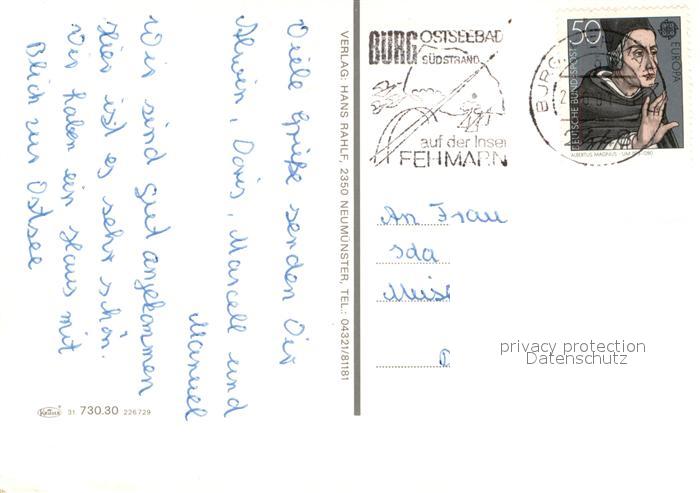 Viele Grüße senden Dir
Alwin, Doris, Marcell und
Manuel
Wir sind gut angekommen
Hier ist es sehr schön.
Wir haben ein Haus mit
Blick zur Ostsee
KRÜGER 31 730.30 226729
VERLAG: HANS RAHLF, 2350 NEUMÜNSTER, TEL.: 04321/81181
BURG OSTSEEBAD
SÜDSTRAND
auf der Insel
FEHMARN
BURG
50
EUROPA
DEUTSCHE BUNDESPOST
ALBERTUS MAGNUS
An Frau
Ida
privacy protection
Datenschutz